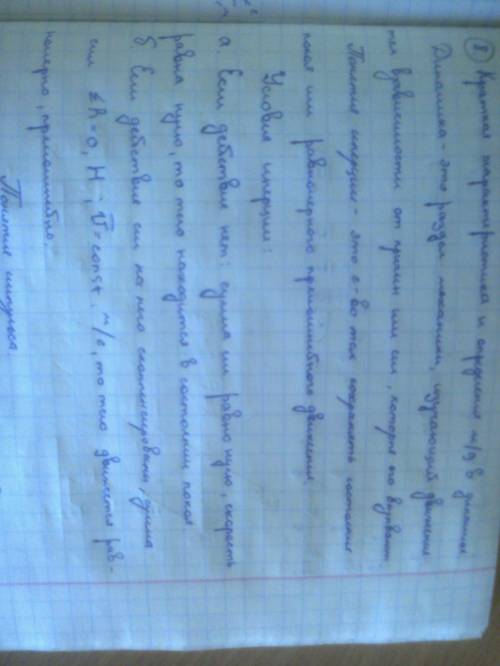 ⑧ Краткая характеристика и определения м/д в динамике
Динамика - это раздел механики, изучающий движение
тел в зависимости от причин или сил, которые его вызвали
Понятие инерции - это с-во тел сохранять состояние
покоя или равномерного прямолинейного движения.
Условия инерции:
а. Если действия нет: сумма сил равна нулю, скорость
равна нулю, то тело находится в состоянии покоя.
б Если действия сил на него скомпенсированы, сумма
сил ΣR=0, Н; v̄=const, м/с, то тело движется рав-
номерно, прямолинейно.
Понятие импульса.